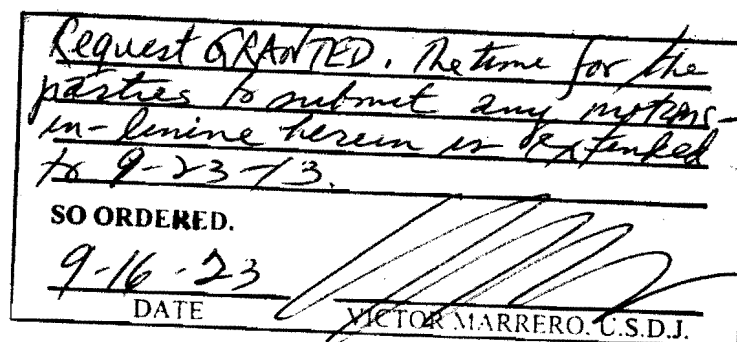 Request GRANTED. The time for the
parties to submit any motions-
in-limine herein is extended
to 9-23-13.
SO ORDERED.
9-16-23
DATE
VICTOR MARRERO, U.S.D.J.